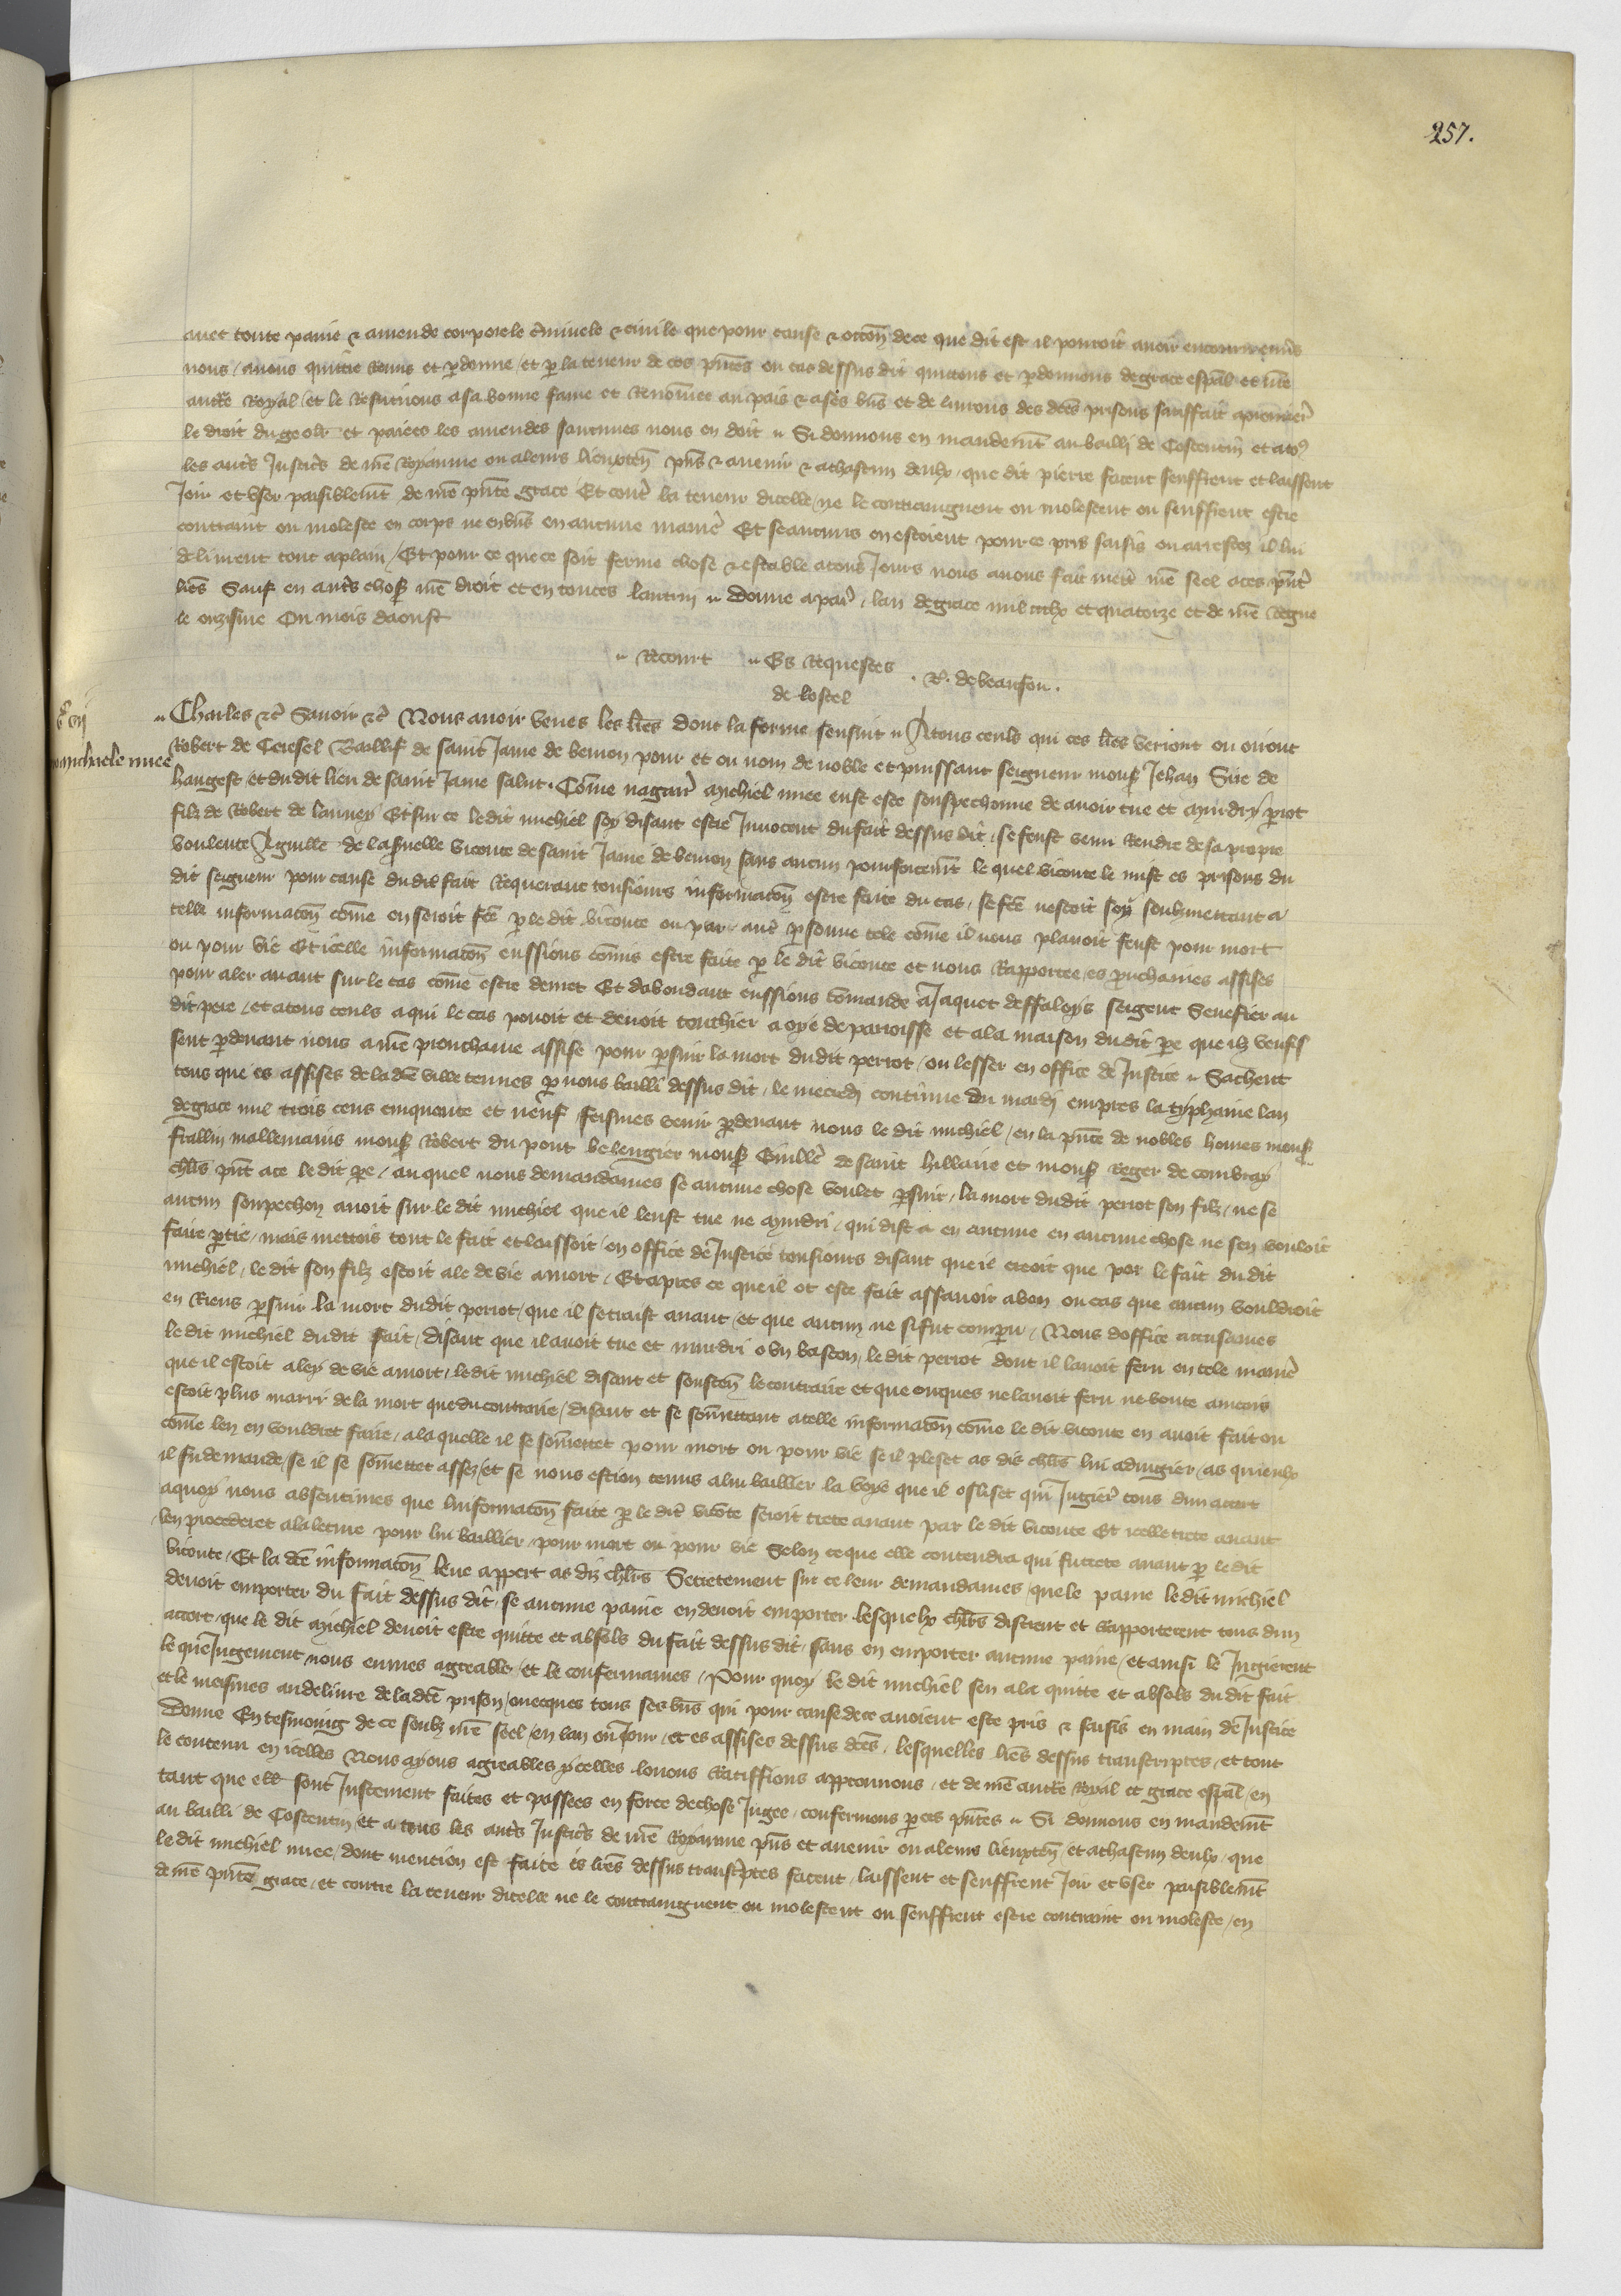 257.
avec toute paine & amende corporele c'minele & civile que pour cause & occõn de ce que dit est il pourroit avoir encourru env's
nous / avons quittie remis et p'donne / et p' la teneur de ces p'ntes ou cas dessus dit quittons et p'donnons de grace esp'al et n're
auct'e Royal / et le restituons a sa bonne fame et renommee au pais & a ses b'ns et de livrons des d'ctes prisons sauffait
le droit du geolr et paiees les amendes saucunes nous en doit Si donnons en mandem't au bailli de Costentin et a to9
les aut's Justic's de n're Royaume ou a leurs lieuxten' p'ns & avenir & a chascun deulx / que dit pierre facent seuffrent et laissent
Joir et user paisiblem't de n're p'nte grace Et cont' la teneur dicelle ne le contraingnent ou molestent ou seuffrent estre
contraint ou moleste en corps ne en b'ns en aucune manie' Et se aucuns en estoient pour ce pris saisis ou arrestez il lui
delivrent tout a plain / Et pour ce que ce soit ferme chose & estable a tous Jours nous avons fait mett' n're seel a ces p'nt'
l'res Sauf en aut's chos' n're droit et en toutes lautrui Donne a par' lan de grace mil ccclx et quatorze et de n're Regne
le onzisme Ou mois daoust
Recourt Es Requestes . R. de beaufou .
de lostel
c vij
michiele nuee
Charles &c' Savoir &c' Nous avoir veues les l'res dont la forme sensuit A tous ceuls qui ces l'res verront ou orront
Robert de Cerisel Baillif de saint Jame de bevron pour et ou nom de noble et puissant seigneur mons' Jehan Sire de
hangest et du dit lieu de saint Jame salut . Comme nagair' Michiel nuee eust este souspechonne de avoir tue et murdry p'rot
filz de Robert de launey Et sur ce le dit michiel soy disant estre Innocent du fait dessus dit / se feust venu rendre de sa propre
voulente A guille' de la fresnelle viconte de saint Jame de bevron sans aucun pourforcem't le quel viconte le mist es prisons du
dit seigneur pour cause du dit fait Requerant tousiours informacõn estre faite du cas / se f'cte nestoit soy soubzmettant a
telle informacõn comme en seroit f'cte p' le dit viconte ou par aut' p'sonne tele comme il nous plairoit feust pour mort
ou pour vie Et icelle informacõn eussions commis estre faite p' le dit viconte et nous rapportee es prouchaines assises
pour aler avant sur le cas comme estre devret Et dabondant eussions commande a Jaquet deffaloys sergent Senefier au
dit pere / et a tous ceuls a qui le cas povoit et devoit touchier a oye de parroisse et a la maison du dit p'e que ilz venis
sent p'devant nous a n're prouchaine assise pour p'suir la mort du dit perrot / ou lesser en office de Justice Sachent
tous que es assises de la d'cte ville tenues p' nous bailli dessus dit / le mecredi continue du mardi empres la typhaine lan
de grace mil trois cens cinquante et neuf / feismes venir p'devant nous le dit michiel / en la p'nce de nobles homes mons'
frallin mallemains mons' Robert du pont belengier mons' Guille' de saint hillaire et mons' Reger de combray
ch'lrs p'nt a ce le dit p'e / au quel nous demandames se aucune chose voulet p'suir / la mort du dit perrot son filz / ne se
aucun soupechon avoit sur le dit michiel que il leust tue ne murdri / qui dist a en aucune en aucune chose ne sen vouloit
faire p'tie / mais mettois tout le fait et laissoit en office de Justice tousiours disant que il creoit que par le fait du dit
michiel / le dit son filz estoit ale de vie a mort / Et apres ce que il ot este fait assavoir a ban ou cas que aucun vouldroit
en riens p'suir la mort du dit perrot / que il se traist avant / et que aucun ne si fut comp'u / Nous doffice accusames
le dit michiel du dit fait / disant que il avoit tue et murdri o un baston / le dit perrot dont il lavoit feru en tele manie'
que il estoit aley de vie a mort / le dit michiel disant et sousten' le contraire et que onques ne lavoit feru ne boute ancois
estoit plus marri de la mort que du contraire / disant et se sommettant a telle informacõn comme le dit viconte en avoit fait ou
comme len en vouldret faire / a la quelle il se sommettet pour mort ou pour vie se il pleset as dis ch'lrs lui adiugier / as quieulx
il fu demande / se il se sommettet assez / et se nous estion tenus a lui baillier la voye que il offriset qui Jugier' tous dun accort
a quoy nous absentimes que linformacõn faite p' le dit vic'te seroit trete avant par le dit viconte Et icelle trete avant
len procederet a la letture pour lui baillier / pour mort ou pour vie Selon ce que elle contendra qui fu trete avant p' le dit
viconte / Et la d'cte informacõn leue appert as diz ch'lrs Secretement sur ce leur demandames / quele paine le dit michiel
devoit emporter du fait dessus dit / se aucune paine en devoit emporter lesquelx ch'lrs distrent et rapporterent tous dun
accort / que le dit Michiel devoit estre quitte et absols du fait dessus dit / sans en emporter aucune paine / et ainsi le Jugierent
le quel Jugement nous eumes agreable / et le confermames / Pour quoy le dit michiel sen ala quitte et absols du dit fait
et le meismes au delivre de la d'cte prison / ovecques tous ses b'ns qui pour cause de ce avoient este pris & saisis en main de Justice
Donne En tesmoing de ce soubz n're seel / en lan ou Jour / et es assises dessus d'ctes / lesquelles l'res dessus transcriptes / et tout
le contenu en icelles Nous ayons agreables ycelles louons Ratiffions approuvons / et de n're auct'e Royal et grace esp'al / en
tant que elles sont Justement faites et passees en force de chose Jugee / confermons p' ces p'ntes Si donnons en mandem't
au bailli de Costentin / et a tous les aut's Justic's de n're Royaume p'ns et avenir ou a leurs lieuxten' / et a chascun deulx / que
le dit michiel nuee / dont mencion est faite es l'res dessus transc'ptes facent / laissent et seuffrent Joir et user paisiblem't
de n're p'nte grace / et contre la teneur dicelle ne le contraingnent ou molestent ou seuffrent estre contraint ou moleste / en